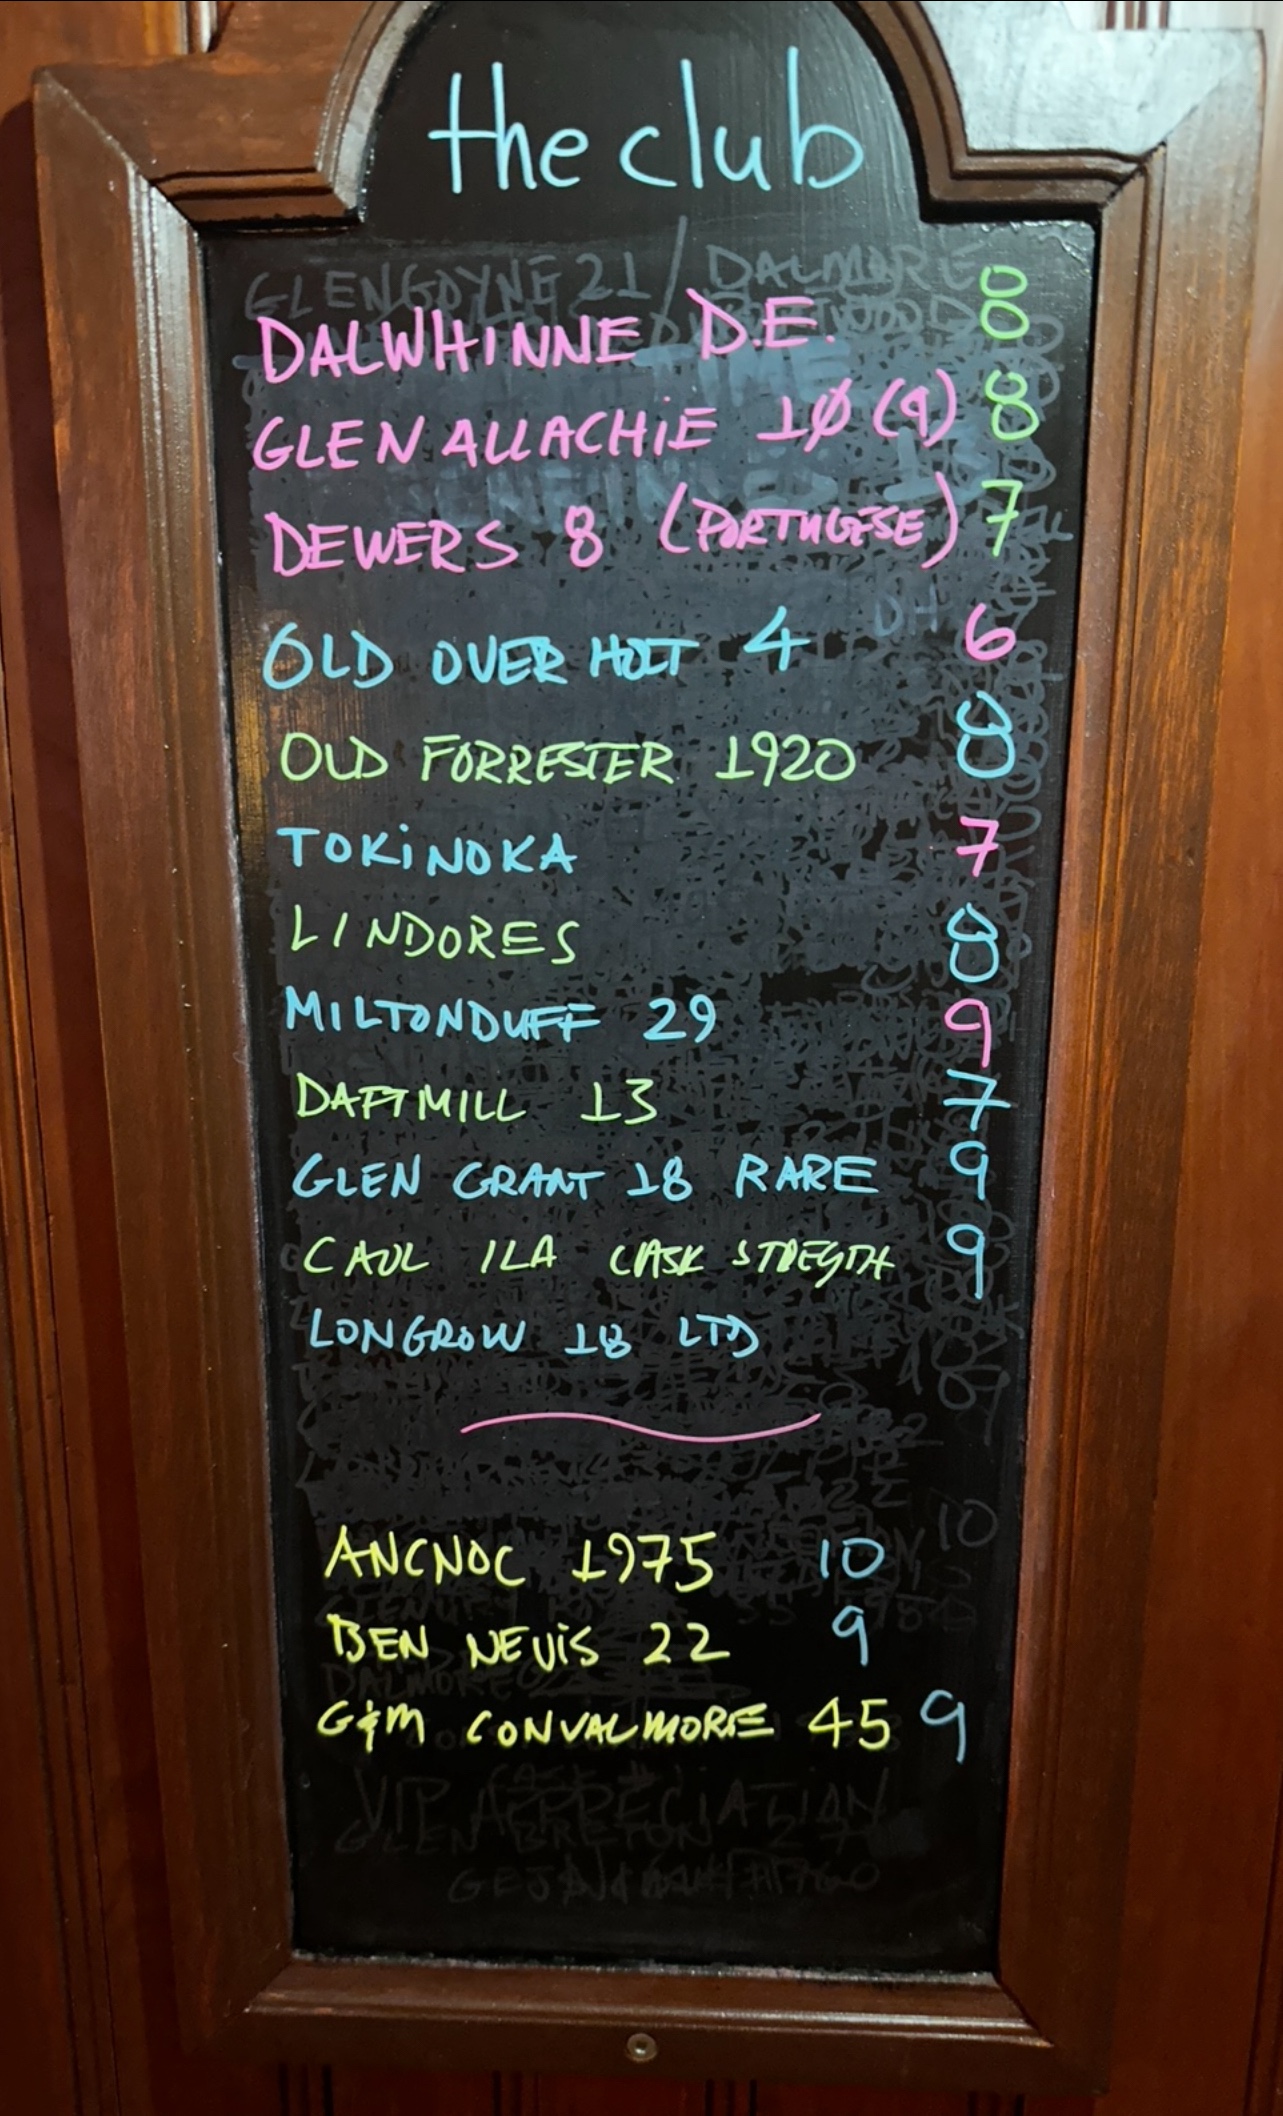 the club
GLENGOYNE 21 / DALMORE
DALWHINNE D.E. 8
GLEN ALLACHIE 10 (9) 8
DEWERS 8 (PORTUGESE) 7
OLD OVER HOLT 4 6
OLD FORRESTER 1920 8
TOKINOKA 7
LINDORES 8
MILTONDUFF 29 9
DAFTMILL 13 7
GLEN GRANT 18 RARE 9
CAOL ILA CASK STREGTH 9
LONGROW 18 LTD
10
ANCNOC 1975 10
BEN NEVIS 22 9
DALMORE
G&M CONVALMORE 45 9
VIP APPRECIATIAN
GLEN BRETON